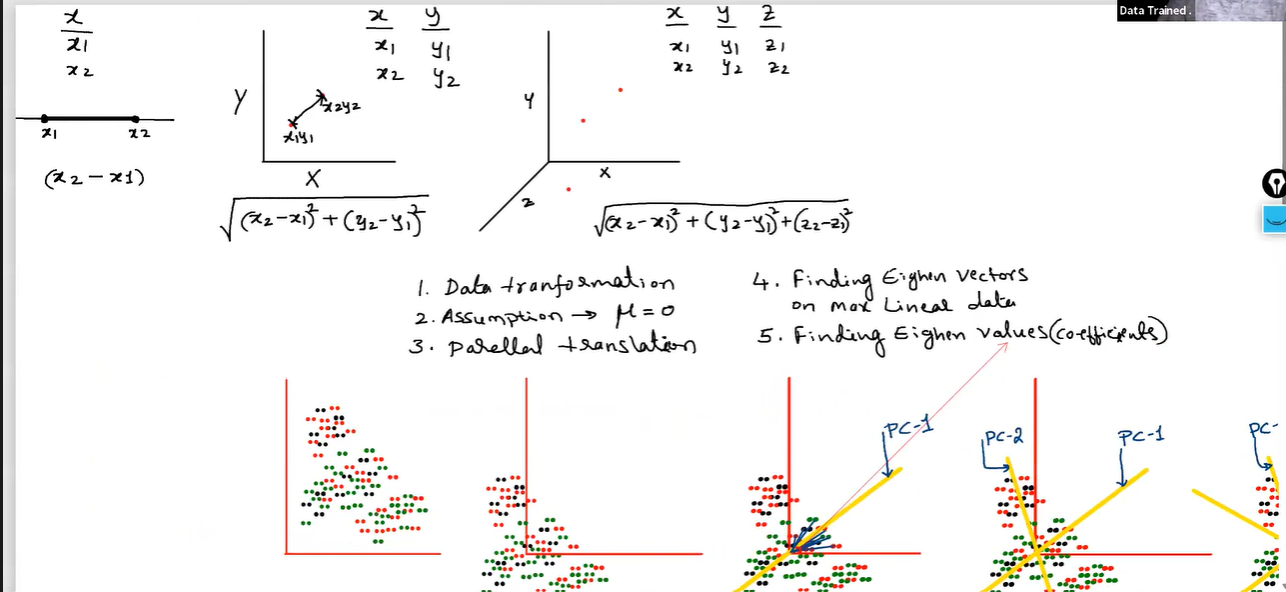 Data Trained .
x
x1
x2
x1 x2
(x2 - x1)
x y
x1 y1
x2 y2
Y
x2y2
x1y1
X
√(x2-x1)² + (y2-y1)²
x y z
x1 y1 z1
x2 y2 z2
Y
X
z
√(x2-x1)² + (y2-y1)² + (z2-z1)²
1. Data tranformation
2. Assumption → μ = 0
3. Parellal translation
4. Finding Eighen vectors
on max Lineal data
5. Finding Eighen values(coefficients)
PC-1
PC-2
PC-1
PC-